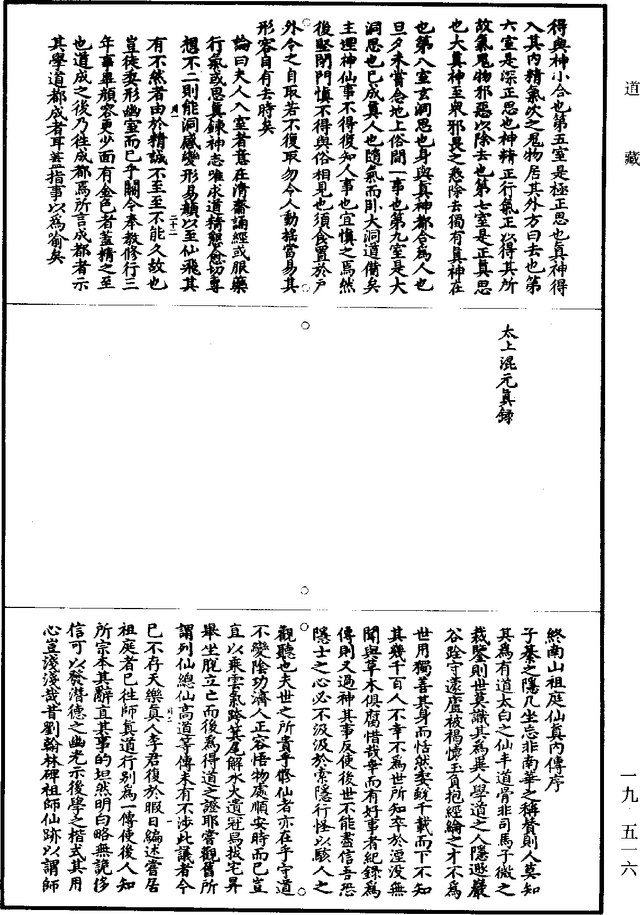 道藏
得與神小合也第五室是極正思也真神得
入其內精氣次之鬼物居其外方日去也第
六室是深正思也神精正行氣正以得其所
故氣鬼物邪惡以除去也第七室是正真思
也大真神至與邪畏之悉除去獨有真神在
也第八室玄洞思也身與真神都合為人也
旦夕未嘗念地上俗間一事也第九室是大
洞思也已成真人也隨氣而卧大洞道備矣
主理神仙事不得復知人事也宜慎之焉然
後堅閉門慎不得與俗相見也須食置於戶
外令之自取若不復取勿令人動搖當易其
形容自有去時矣
論曰夫人入室者意在清齋誦經或服藥
行氣或思真鍊神志唯求道精慤愈切專
想不二則能洞感變形易顏以至仙飛其
有不然者由於精誠不至至不能久故也
豈徒委形幽室而已乎關令奉教修行三
年事畢顏容更少面有金色者蓋精之至
也道成之後乃往成都焉所言成都者示
其學道都成者耳蓋指事以為喻矣
太上混元真錄
終南山祖庭仙真內傳序
子綦之隱几坐忘非南華之稱贊則人莫知
其為有道太白之仙丰道骨非司馬子微之
裁鑒則世莫識其為異人學道之人隱遯巖
谷跧守蓬廬被褐懷玉負抱經綸之才不為
世用獨善其身而恬然寂默千載而下不知
其幾千百人不幸不為世所知卒於湮沒無
聞與草木俱腐惜哉毎而有好事者紀錄為
傳則又過神其事反使後世不能盡信吾恐
隱士之心必不汲汲於索隱行怪以駭人之
觀聽也夫世之所貴乎修仙者亦在乎守道
不變陰功濟人正容悟物處順安時而已豈
直以乘雲氣跨箕尾解水火遺冠舄拔宅昇
舉坐脫立亡而後為得道之證耶嘗觀舊所
謂列仙總仙高道等傳未有不涉此議者今
已不存天樂真人李君復於暇日編述嘗居
祖庭者已往師真道行別為一傳使後人知
所宗本其辭直其事的坦然明白略無詭侈
信可以發潛德之幽光示後學之楷式其用
心豈淺淺哉昔劉翰林碑祖師仙跡以謂師
一九·五一六